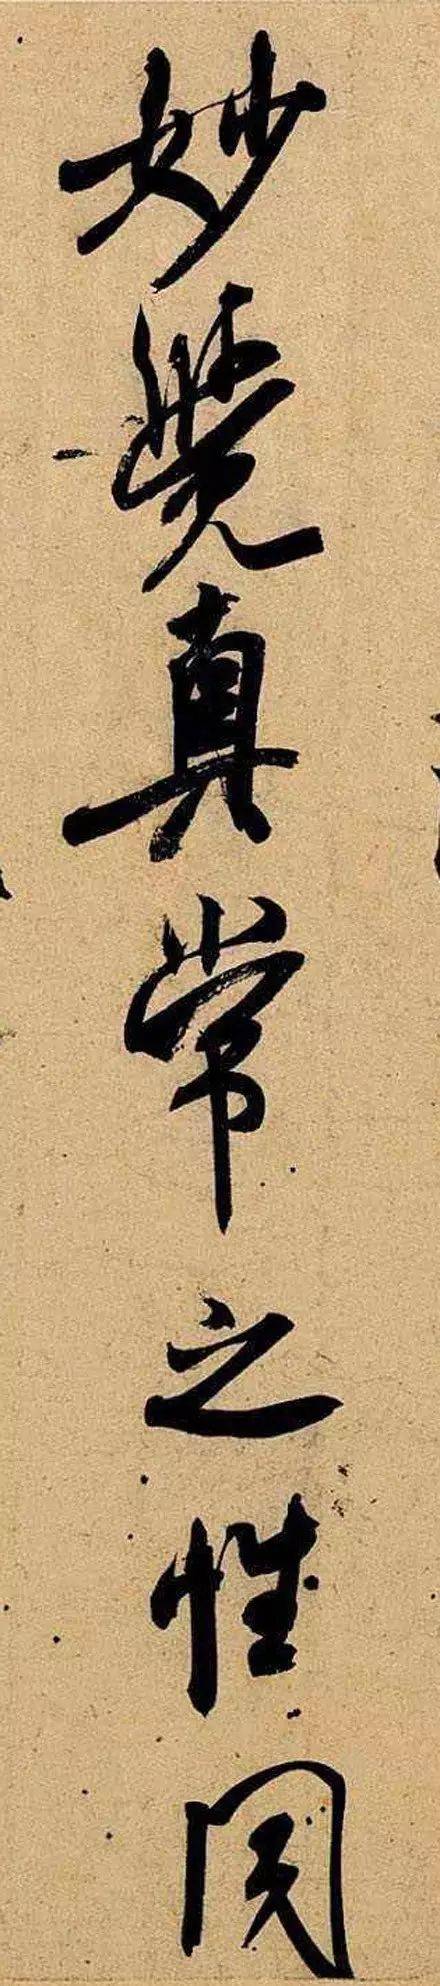 妙覺真常之性